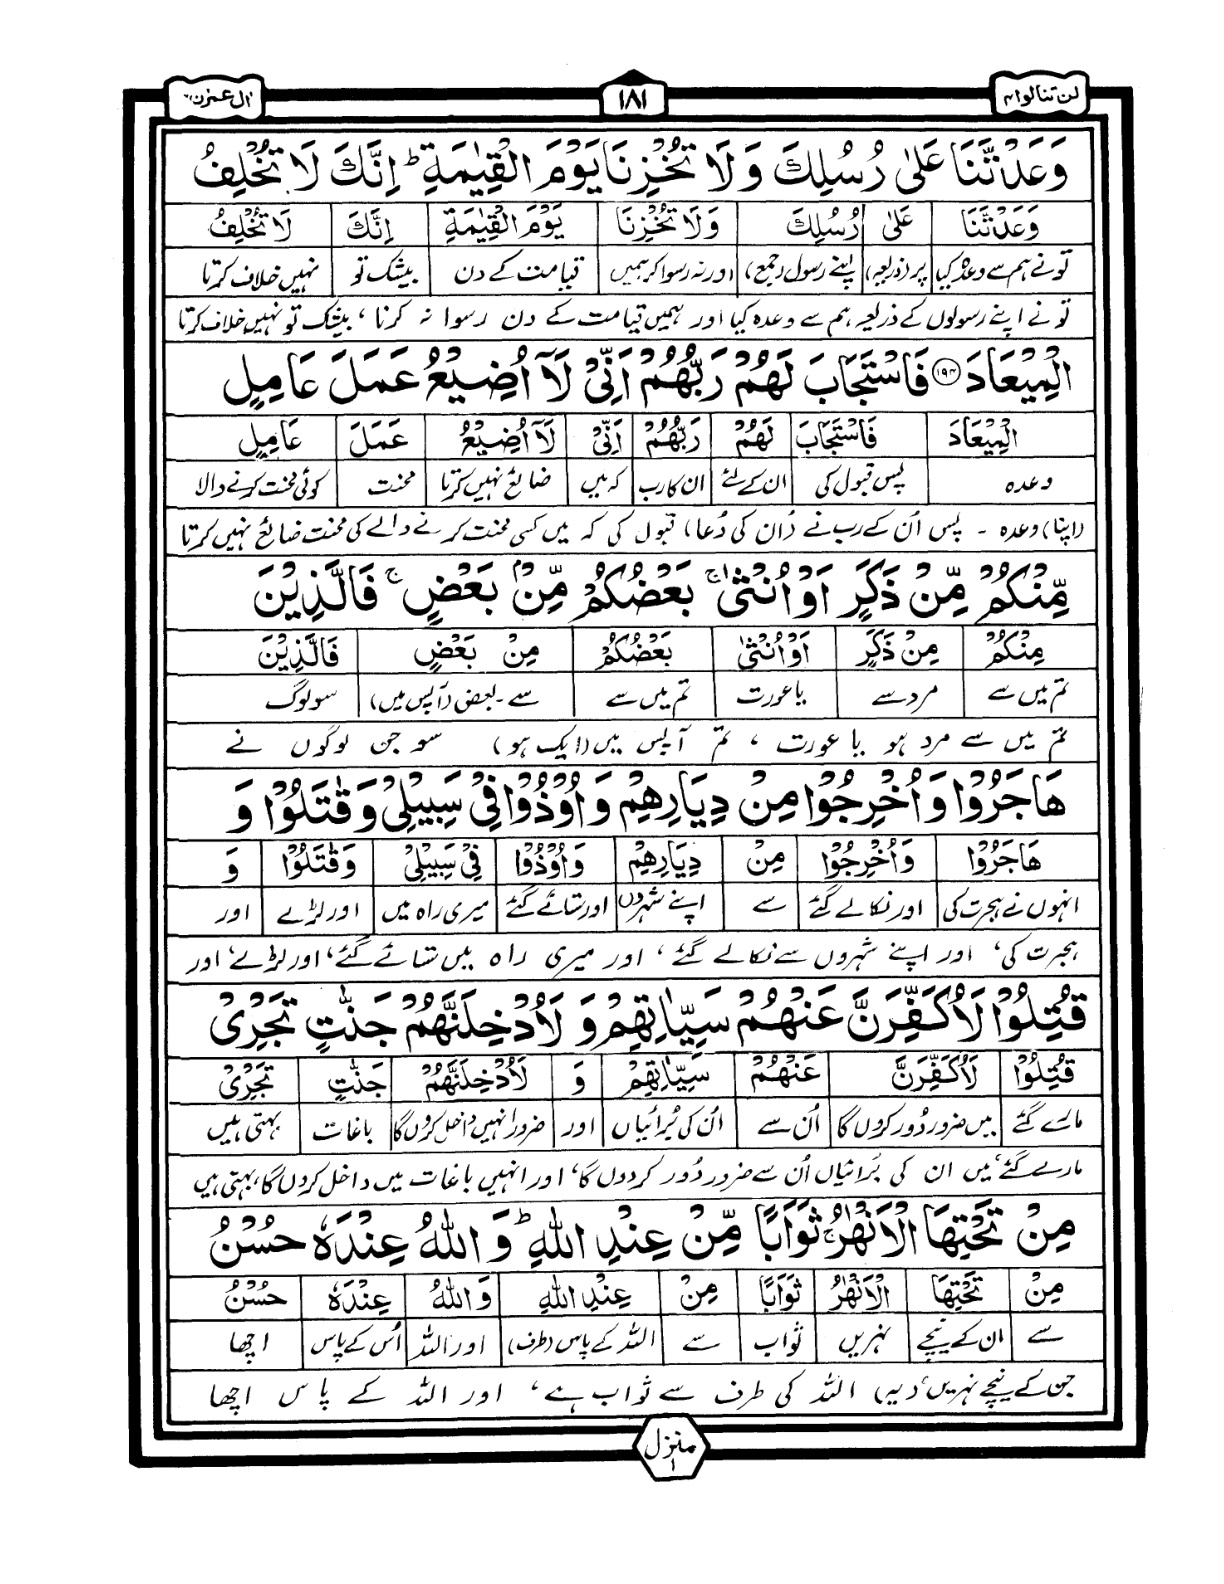 لن تنالوا ۴
۱۸۱
اٰل عمرٰن ۳
وَعَدْتَّنَا عَلٰى رُسُلِكَ وَلَا تُخْزِنَا يَوْمَ الْقِيٰمَةِ ؕ اِنَّكَ لَا تُخْلِفُ
وَعَدْتَنَا عَلٰى رُسُلِكَ وَلَا تُخْزِنَا يَوْمَ الْقِيٰمَةِ اِنَّكَ لَا تُخْلِفُ
تونے ہم سے وعدہ کیا پر (ذریعہ) اپنے رسول (جمع) اور نہ رسوا کر ہمیں قیامت کے دن بیشک تو نہیں خلاف کرتا
تو نے اپنے رسولوں کے ذریعہ ہم سے وعدہ کیا اور ہمیں قیامت کے دن رسوا نہ کرنا ، بیشک تو نہیں خلاف کرتا
الْمِيْعَادَ ۱۹۴ فَاسْتَجَابَ لَهُمْ رَبُّهُمْ اَنِّىْ لَآ اُضِيْعُ عَمَلَ عَامِلٍ
الْمِيْعَادَ فَاسْتَجَابَ لَهُمْ رَبُّهُمْ اَنِّىْ لَآ اُضِيْعُ عَمَلَ عَامِلٍ
وعدہ پس قبول کی ان کے لئے ان کا رب کہ میں ضائع نہیں کرتا محنت کوئی محنت کرنے والا
(اپنا) وعدہ ۔ پس اُن کے رب نے (اُن کی دُعا) قبول کی کہ میں کسی محنت کرنے والے کی محنت ضائع نہیں کرتا
مِّنْكُمْ مِّنْ ذَكَرٍ اَوْ اُنْثٰى ۚ بَعْضُكُمْ مِّنْۢ بَعْضٍ ۚ فَالَّذِيْنَ
مِنْكُمْ مِنْ ذَكَرٍ اَوْ اُنْثٰى بَعْضُكُمْ مِنْ بَعْضٍ فَالَّذِيْنَ
تم میں سے مرد سے یا عورت تم میں سے سے ۔ بعض (آپس میں) سو لوگ
تم میں سے مرد ہو یا عورت ، تم آپس میں (ایک ہو) سو جن لوگوں نے
هَاجَرُوْا وَاُخْرِجُوْا مِنْ دِيَارِهِمْ وَاُوْذُوْا فِىْ سَبِيْلِىْ وَقٰتَلُوْا وَ
هَاجَرُوْا وَاُخْرِجُوْا مِنْ دِيَارِهِمْ وَاُوْذُوْا فِىْ سَبِيْلِىْ وَقٰتَلُوْا وَ
انہوں نے ہجرت کی اور نکالے گئے سے اپنے شہروں اور ستائے گئے میری راہ میں اور لڑے اور
ہجرت کی، اور اپنے شہروں سے نکالے گئے، اور میری راہ میں ستائے گئے، اور لڑے، اور
قُتِلُوْا لَاُكَفِّرَنَّ عَنْهُمْ سَيِّاٰتِهِمْ وَ لَاُدْخِلَنَّهُمْ جَنّٰتٍ تَجْرِىْ
قُتِلُوْا لَاُكَفِّرَنَّ عَنْهُمْ سَيِّاٰتِهِمْ وَ لَاُدْخِلَنَّهُمْ جَنّٰتٍ تَجْرِىْ
مارے گئے میں ضرور دُور کروں گا اُن سے اُن کی بُرائیاں اور ضرور انہیں داخل کروں گا باغات بہتی ہیں
مارے گئے، میں ان کی بُرائیاں اُن سے ضرور دُور کردوں گا، اور انہیں باغات میں داخل کردوں گا، بہتی ہیں
مِنْ تَحْتِهَا الْاَنْهٰرُ ۚ ثَوَابًا مِّنْ عِنْدِ اللّٰهِ ؕ وَاللّٰهُ عِنْدَهٗ حُسْنُ
مِنْ تَحْتِهَا الْاَنْهٰرُ ثَوَابًا مِنْ عِنْدِ اللّٰهِ وَاللّٰهُ عِنْدَهٗ حُسْنُ
سے ان کے نیچے نہریں ثواب سے اللہ کے پاس (طرف) اور اللہ اُس کے پاس اچھا
جن کے نیچے نہریں، (یہ) اللہ کی طرف سے ثواب ہے، اور اللہ کے پاس اچھا
منزل ۱